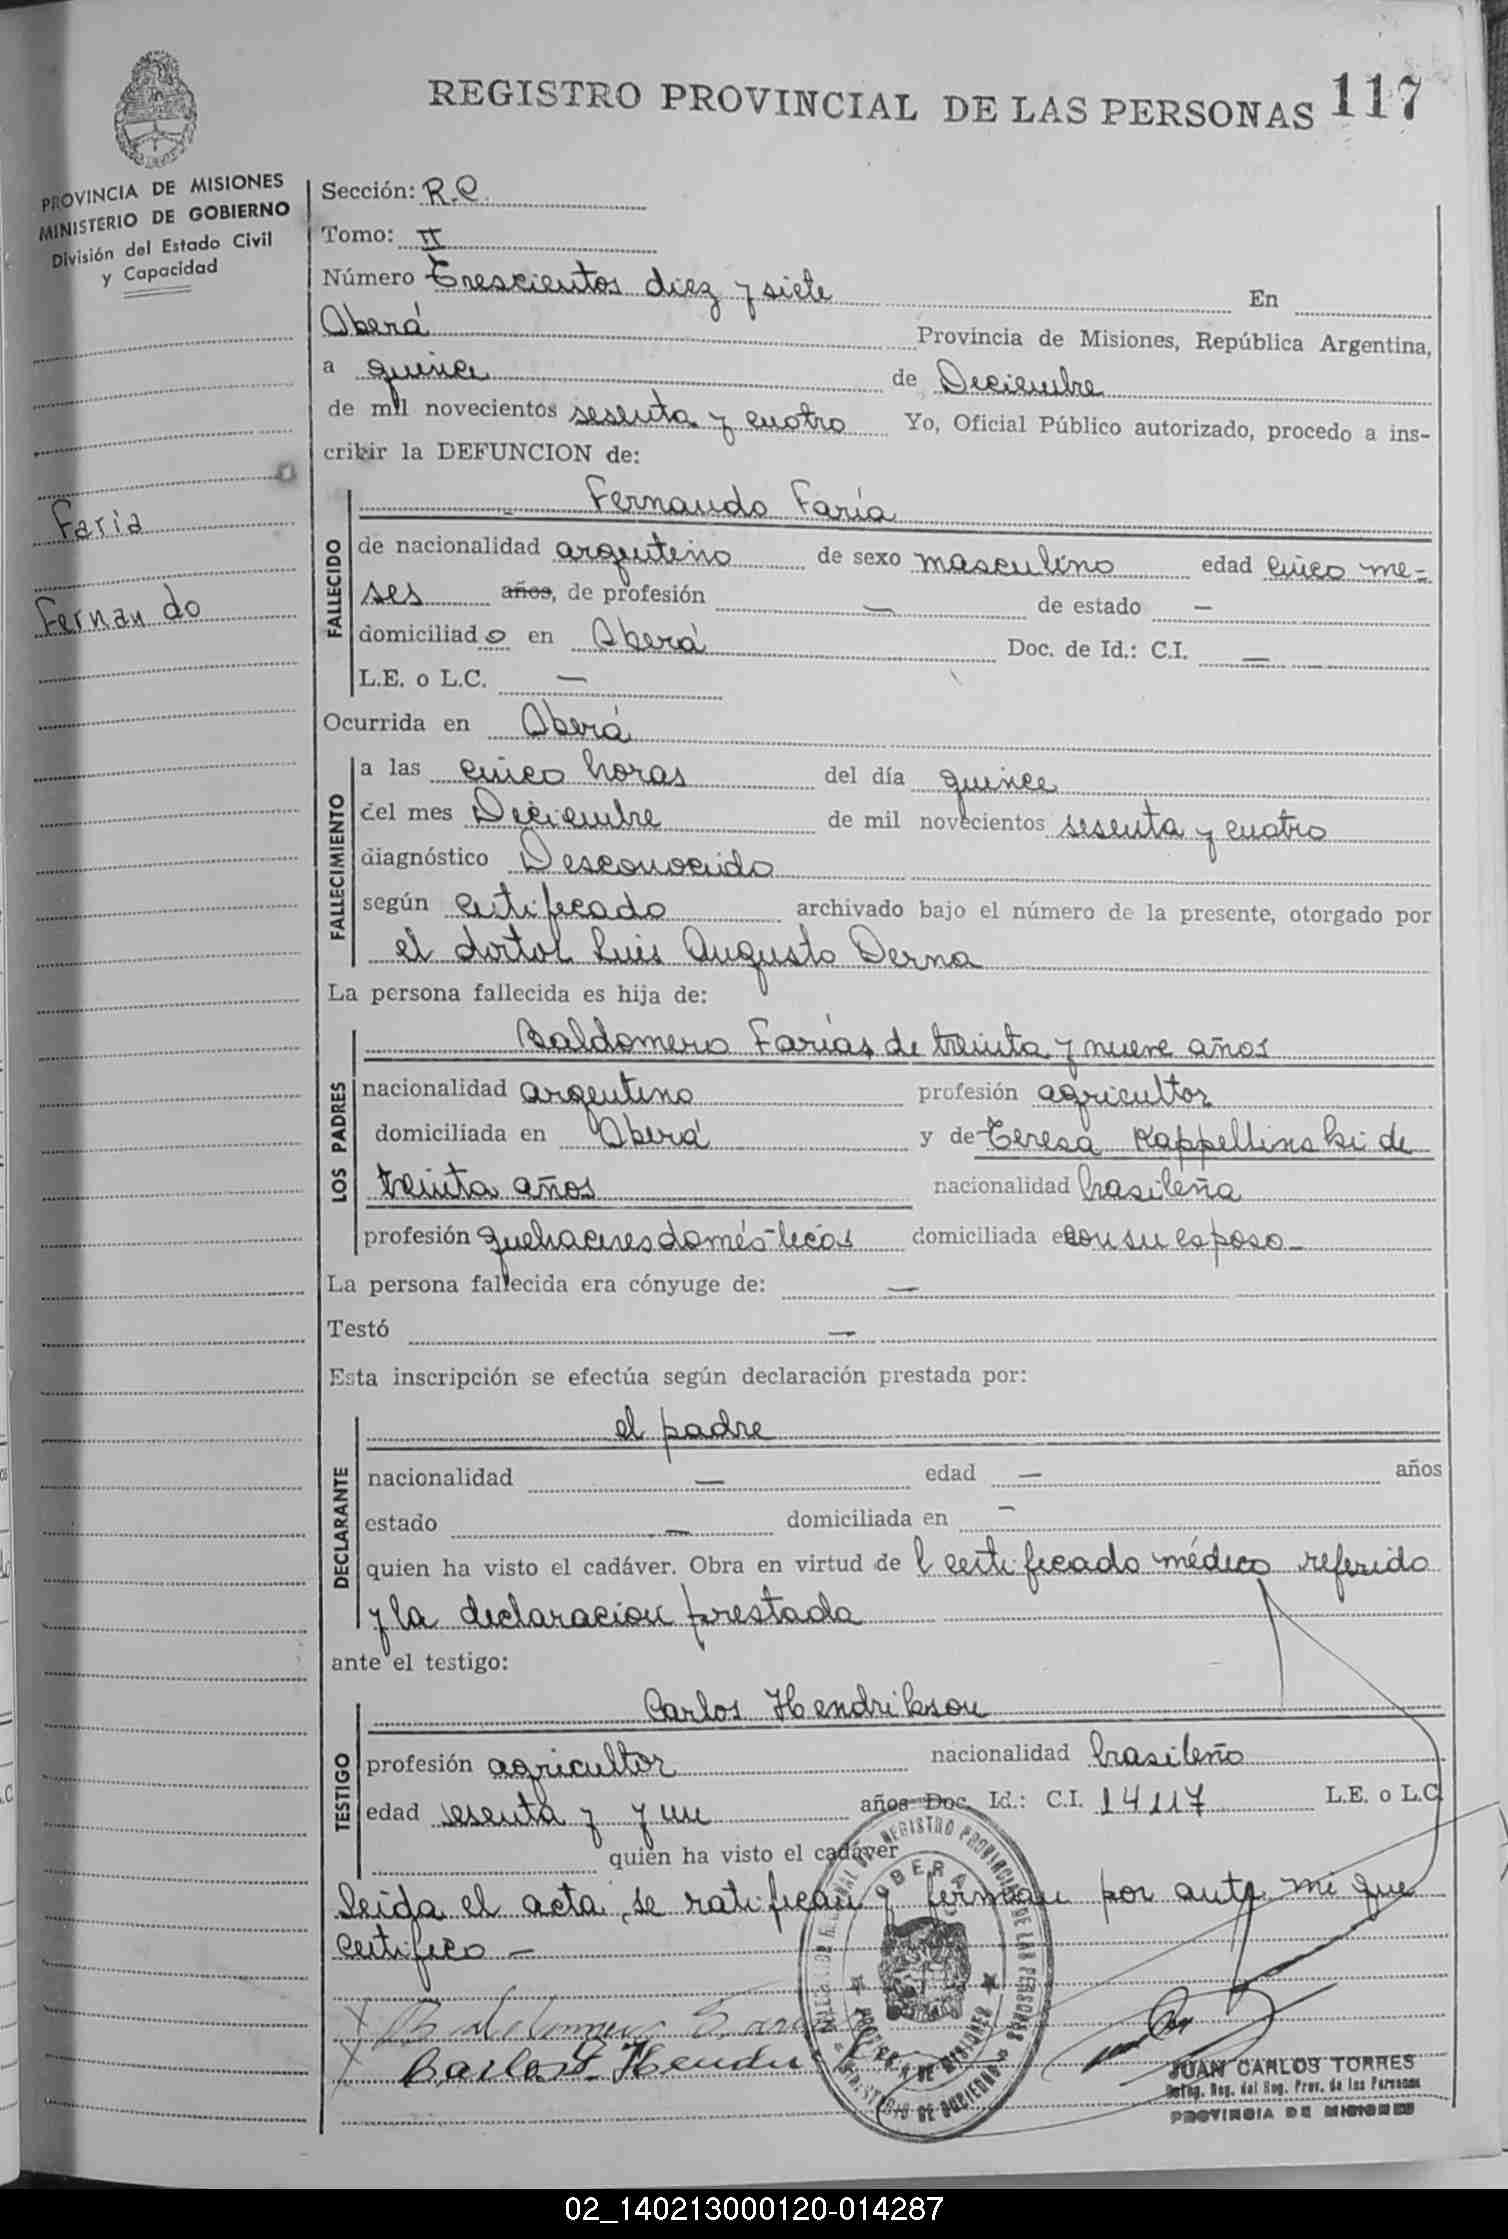 REGISTRO PROVINCIAL DE LAS PERSONAS 117
PROVINCIA DE MISIONES
MINISTERIO DE GOBIERNO
División del Estado Civil
y Capacidad
Faria
Fernando
Sección: R.C.
Tomo: II
Número Trescientos diez y siete En
Oberá Provincia de Misiones, República Argentina,
a quince de Deciembre
de mil novecientos sesenta y cuatro Yo, Oficial Público autorizado, procedo a ins-
cribir la DEFUNCION de:
FALLECIDO
Fernando Faría
de nacionalidad argentino de sexo masculino edad cinco me-
ses años, de profesión — de estado —
domiciliado en Oberá Doc. de Id.: C.I. —
L.E. o L.C. —
Ocurrida en Oberá
FALLECIMIENTO
a las cinco horas del día quince
del mes Deciembre de mil novecientos sesenta y cuatro
diagnóstico Desconocido
según certificado archivado bajo el número de la presente, otorgado por
el doctor Luis Augusto Derna
La persona fallecida es hija de:
LOS PADRES
Baldomero Farías de treinta y nueve años
nacionalidad argentino profesión agricultor
domiciliada en Oberá y de Teresa Kappellinski de
treinta años nacionalidad brasileña
profesión quehaceres domésticos domiciliada con su esposo
La persona fallecida era cónyuge de: —
Testó —
Esta inscripción se efectúa según declaración prestada por:
DECLARANTE
el padre
nacionalidad — edad — años
estado — domiciliada en —
quien ha visto el cadáver. Obra en virtud de l certificado médico referido
y la declaracion prestada
ante el testigo:
TESTIGO
Carlos Hendrikson
profesión agricultor nacionalidad brasileño
edad sesenta y y un años Doc. Id.: C.I. 14117 L.E. o L.C.
quien ha visto el cadáver
Leida el acta, se ratifican y firman por ante mi que
certifico —
OBERA
PROVINCIA DE MISIONES
MINISTERIO DE GOBIERNO
Carlos Hendri
JUAN CARLOS TORRES
Reg. del Reg. Prov. de las Personas
PROVINCIA DE MISIONES
02_140213000120-014287